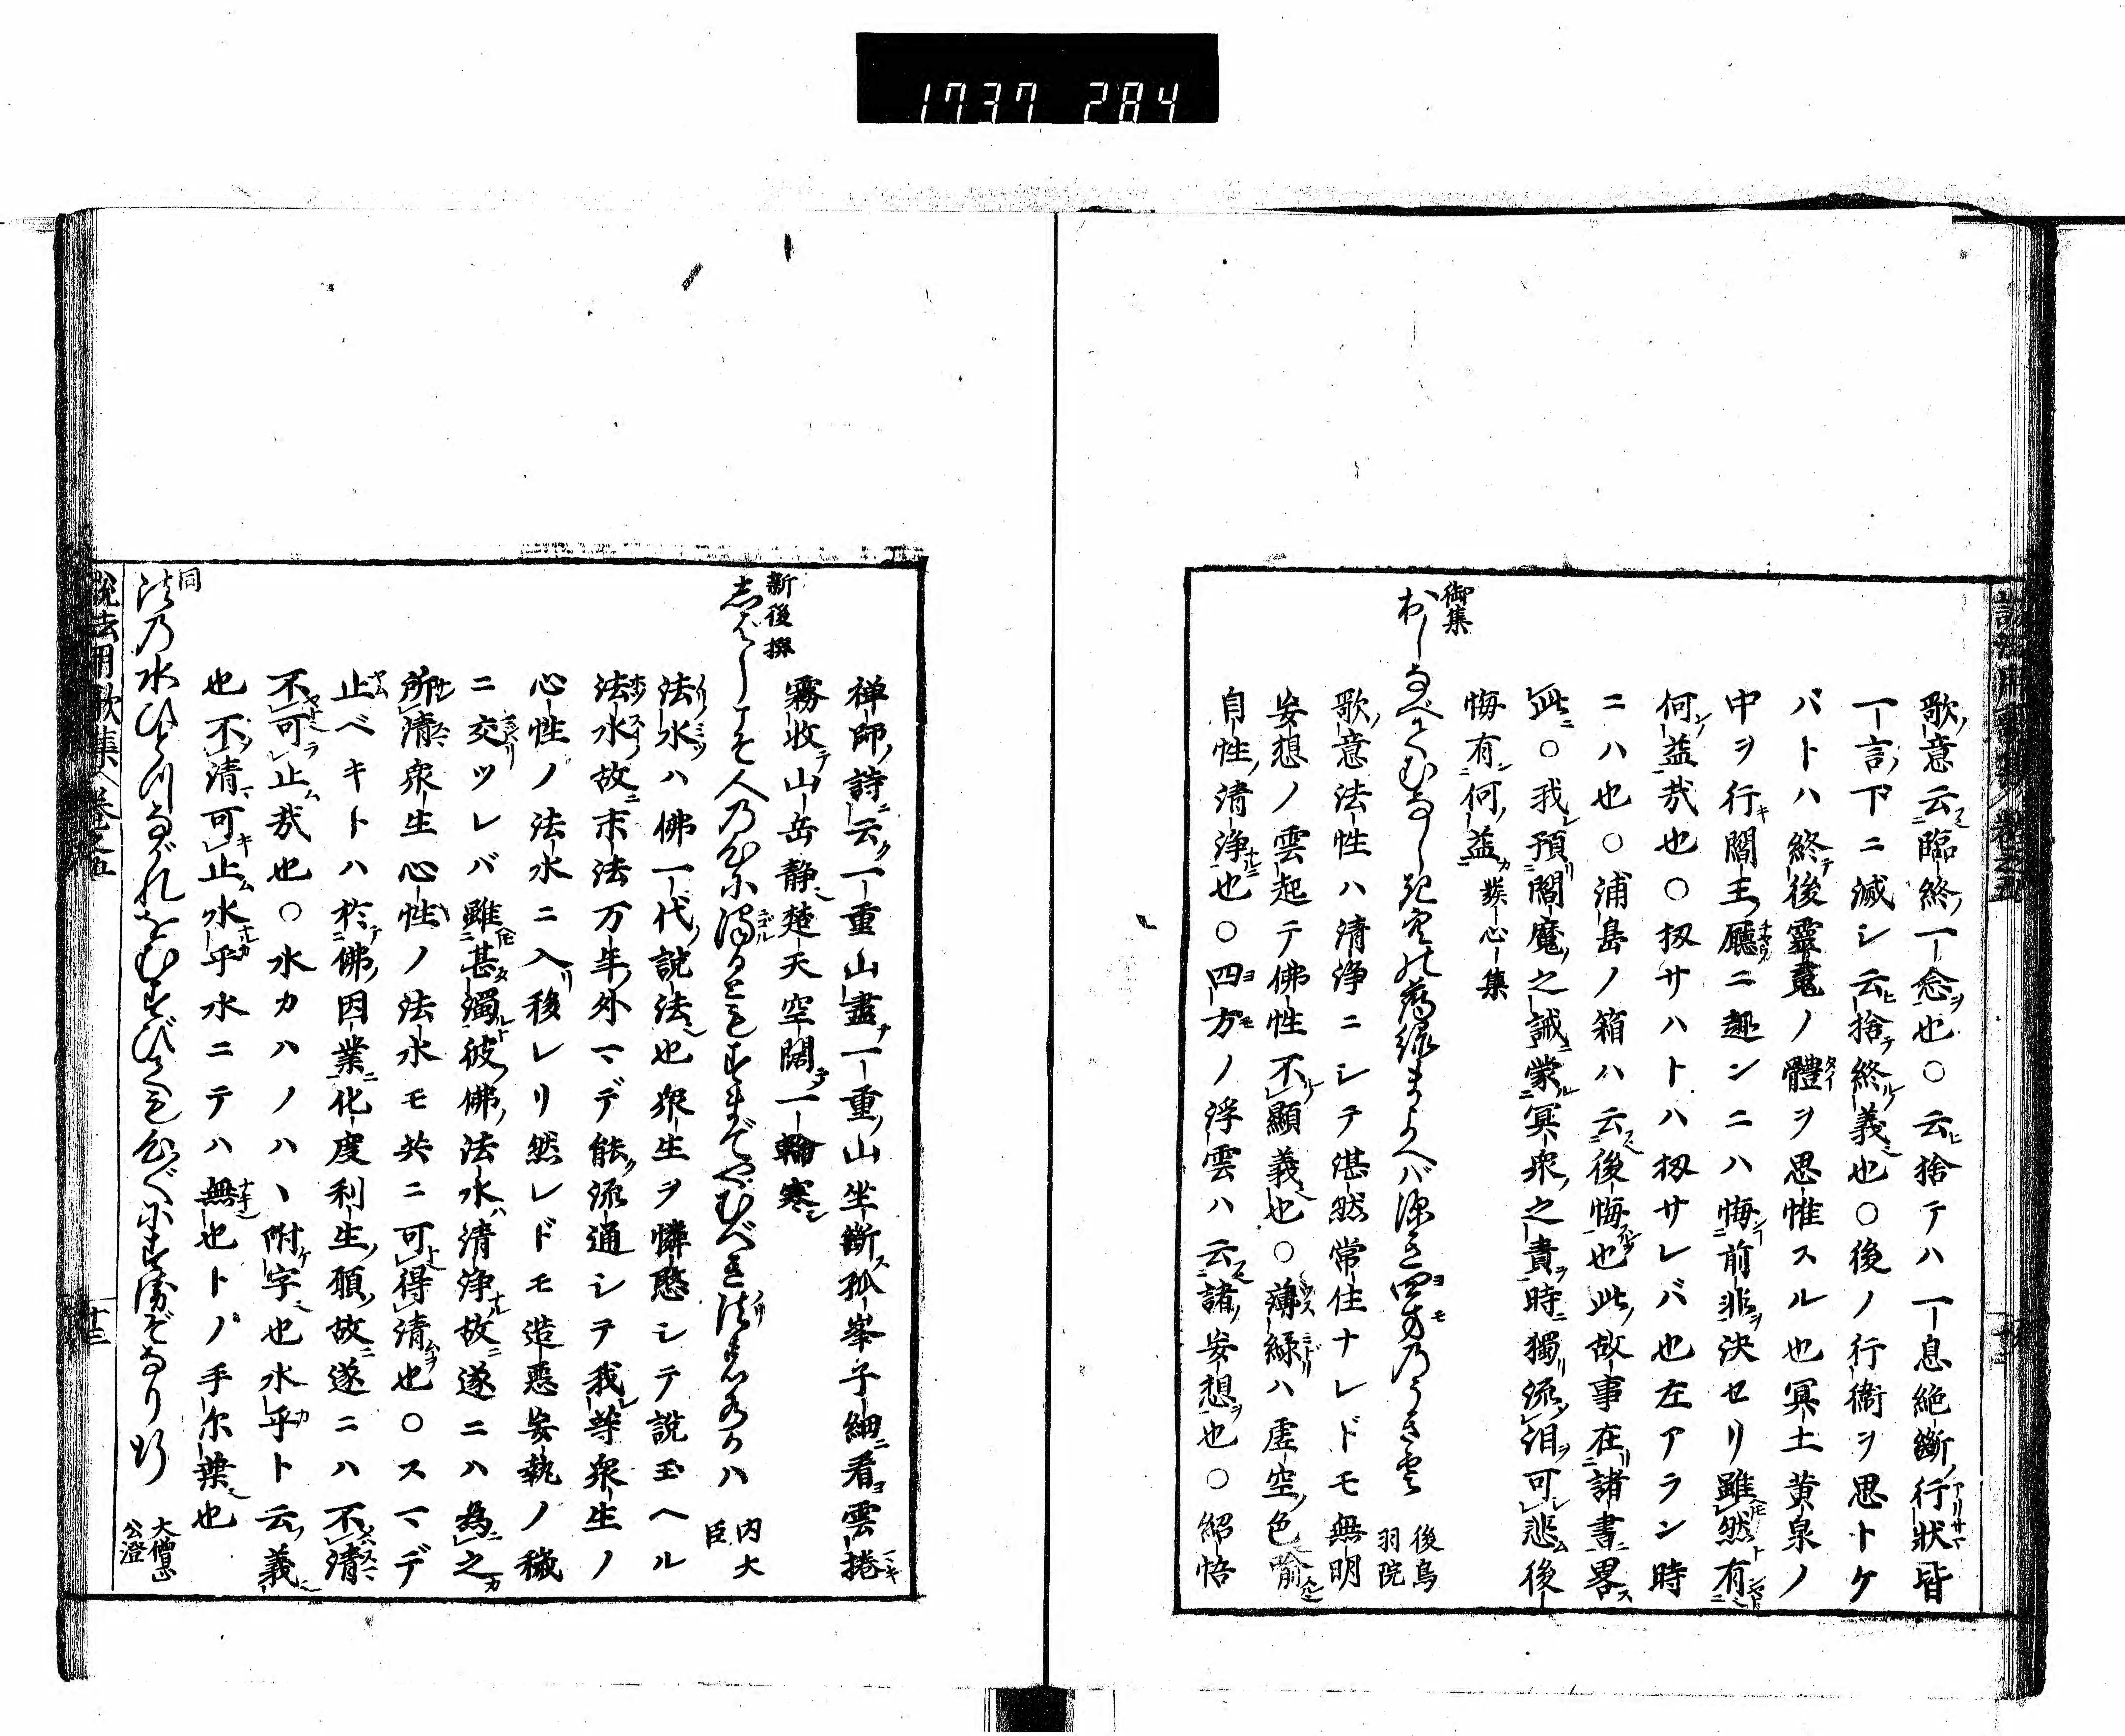 1737 284
歌意云臨終一念也○云捨テハ一息絶斷行狀皆
一言下ニ滅シ云捨終義也○後ノ行衞ヲ思トケ
バトハ終後靈鬼ノ體ヲ思惟スル也冥土黄泉ノ
中ヲ行閻王廳ニ趣ンニハ悔前非決セリ雖然有
何益哉也○扨サハトハ扨サレバ也左アラン時
ニハ也○浦島ノ箱ハ云後悔也此故事在諸書畧
此○我預閻魔之誡蒙冥衆之責時獨流泪可悲後
悔有何益 發心集
御集
おしなべてむなしき空の薄緑まよへば深き四方のうき雲
後鳥
羽院
歌意法性ハ清浄ニシテ湛然常住ナレドモ無明
妄想ノ雲起テ佛性不顯義也○薄緑ハ虚空色喩
自性清浄也○四方ノ浮雲ハ云諸妄想也○紹悟
禅師詩云一重山盡一重山坐斷孤峯子細看雲捲
霧收山岳静楚天空闊一輪寒
新後撰
志ばしこそ人乃心に濁るともすまでやむべき法の水かハ
内大
臣
法水ハ佛一代説法也衆生ヲ憐愍シテ説玉ヘル
法水故末法万年外マデ能流通シヲ我等衆生ノ
心性ノ法水ニ入移レリ然レドモ造惡妄執ノ穢
ニ交ツレバ雖甚濁彼佛法水清浄故遂ニハ為之
所清衆生心性ノ法水モ共ニ可得清也○スマデ
止ベキトハ於佛因業化度利生願故遂ニハ不清
不可止哉也○水カハノハヽ附字也水乎ト云義
也不清可止水乎水ニテハ無也トノ手尓葉也
同
法乃水ひとつながれをむすびても心ぐにすゑぞなり行
大僧正
公澄
説法用歌集 巻之五 十三